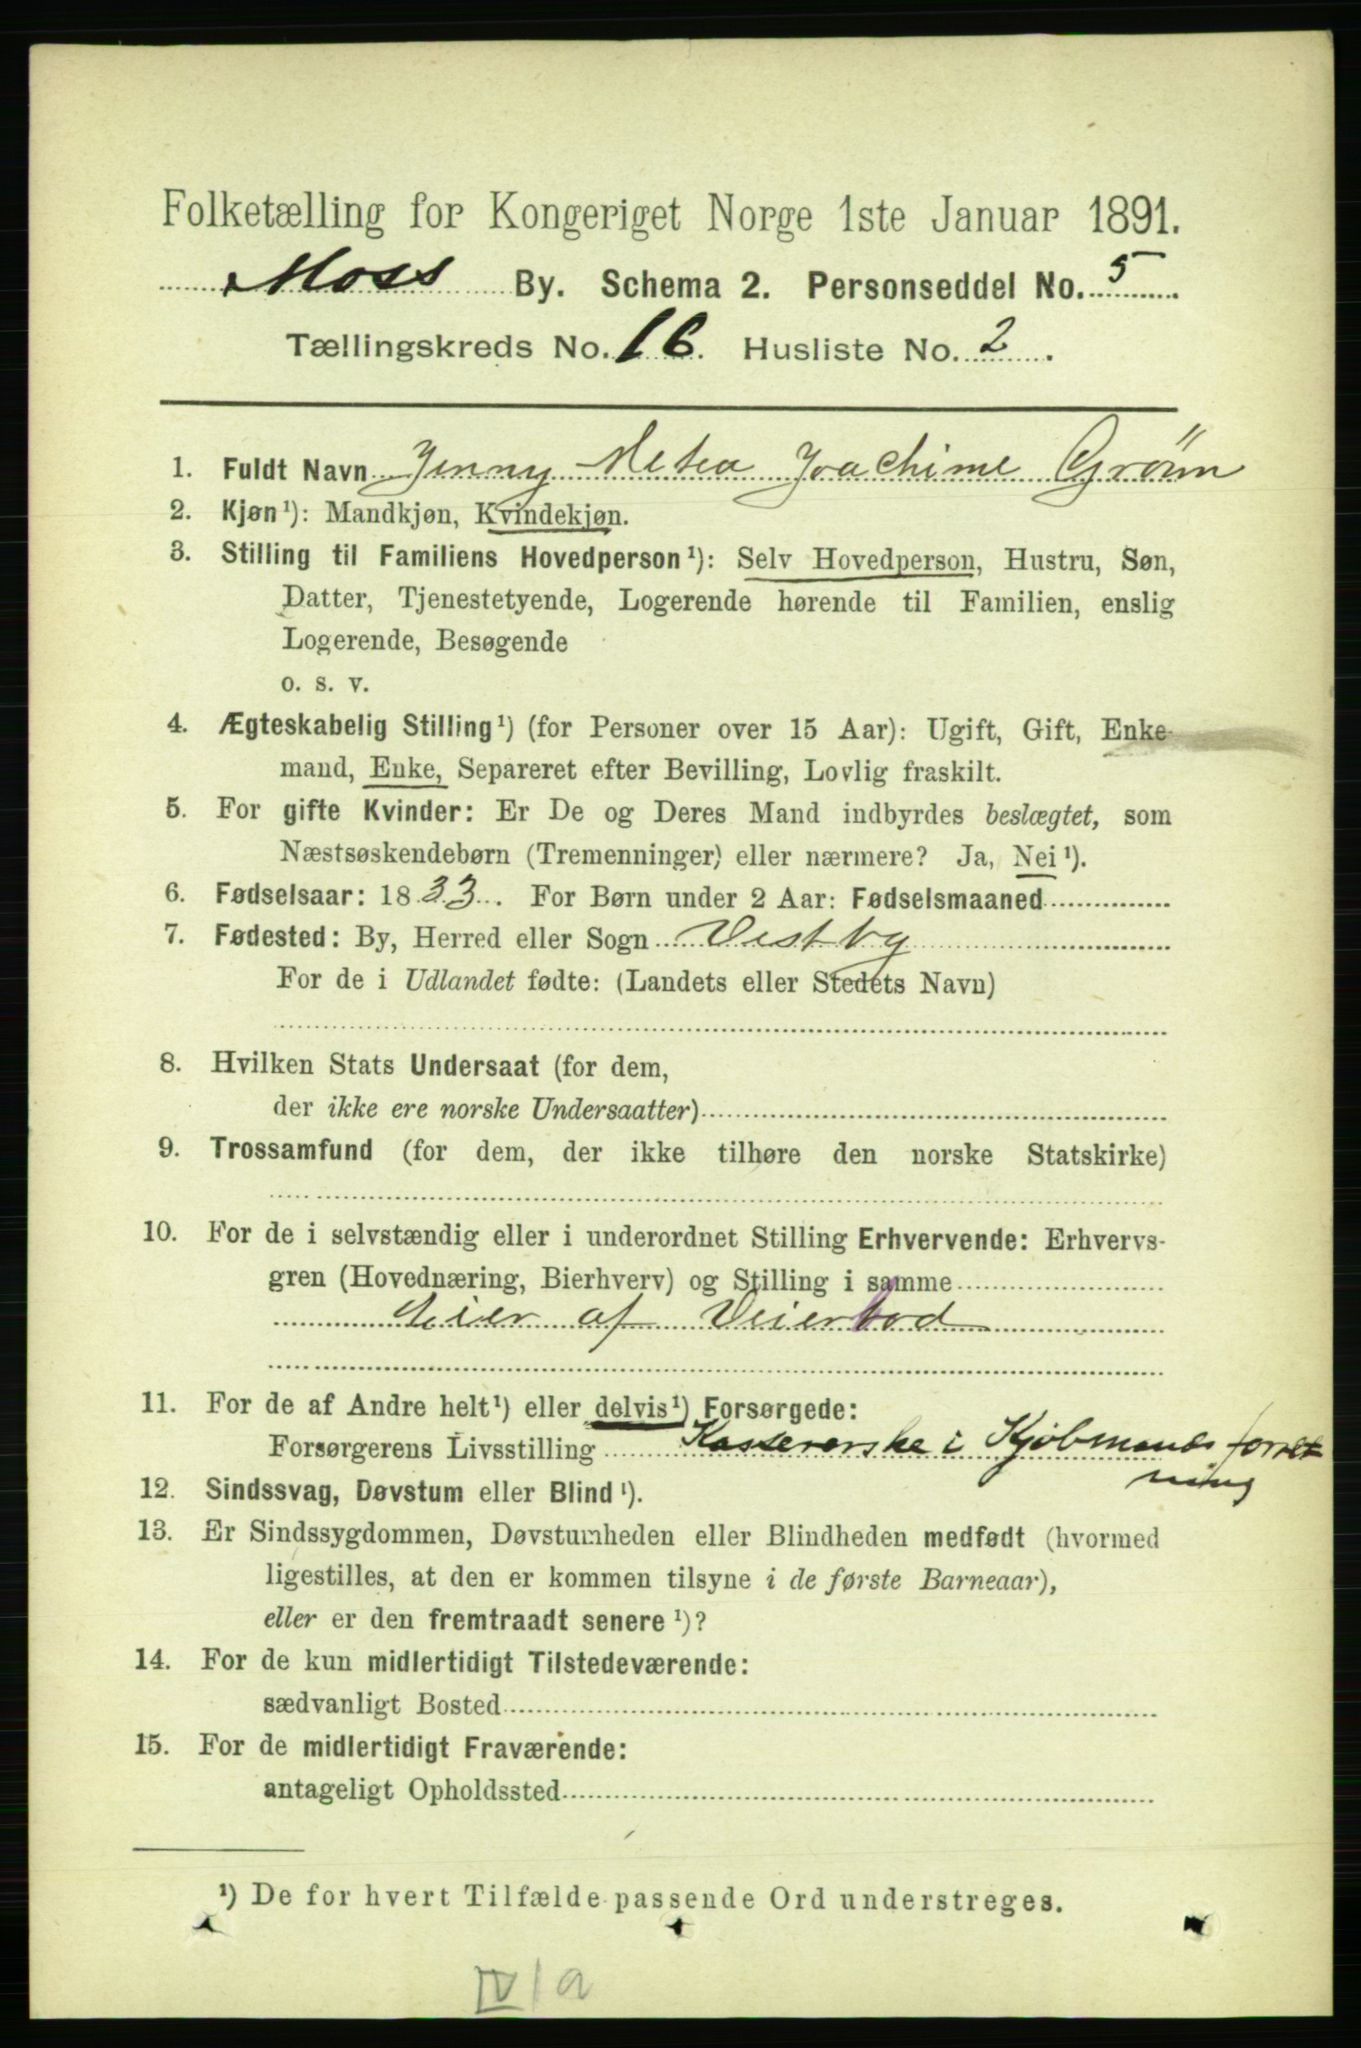 Folketælling for Kongeriget Norge 1ste Januar 1891.
Moss By. Schema 2. Personseddel No. 5
Tællingskreds No. 16. Husliste No. 2.
1. Fuldt Navn Jenny Metea Joachime Grönn
2. Kjøn¹): Mandkjøn, Kvindekjøn.
3. Stilling til Familiens Hovedperson¹): Selv Hovedperson, Hustru, Søn,
Datter, Tjenestetyende, Logerende hørende til Familien, enslig
Logerende, Besøgende
o. s. v.
4. Ægteskabelig Stilling¹) (for Personer over 15 Aar): Ugift, Gift, Enke-
mand, Enke, Separeret efter Bevilling, Lovlig fraskilt.
5. For gifte Kvinder: Er De og Deres Mand indbyrdes beslægtet, som
Næstsøskendebørn (Tremenninger) eller nærmere? Ja, Nei¹).
6. Fødselsaar: 1833. For Børn under 2 Aar: Fødselsmaaned
7. Fødested: By, Herred eller Sogn Vestby
For de i Udlandet fødte: (Landets eller Stedets Navn)
8. Hvilken Stats Undersaat (for dem,
der ikke ere norske Undersaatter)
9. Trossamfund (for dem, der ikke tilhøre den norske Statskirke)
10. For de i selvstændig eller i underordnet Stilling Erhvervende: Erhvervs-
gren (Hovednæring, Bierhverv) og Stilling i samme
Eier af Veierbod
11. For de af Andre helt¹) eller delvis¹) Forsørgede:
Forsørgerens Livsstilling Kassererske i Kjöbmandsforret
ning
12. Sindssvag, Døvstum eller Blind¹).
13. Er Sindssygdommen, Døvstumheden eller Blindheden medfødt (hvormed
ligestilles, at den er kommen tilsyne i de første Barneaar),
eller er den fremtraadt senere¹)?
14. For de kun midlertidigt Tilstedeværende:
sædvanligt Bosted
15. For de midlertidigt Fraværende:
antageligt Opholdssted
¹) De for hvert Tilfælde passende Ord understreges.
IV a